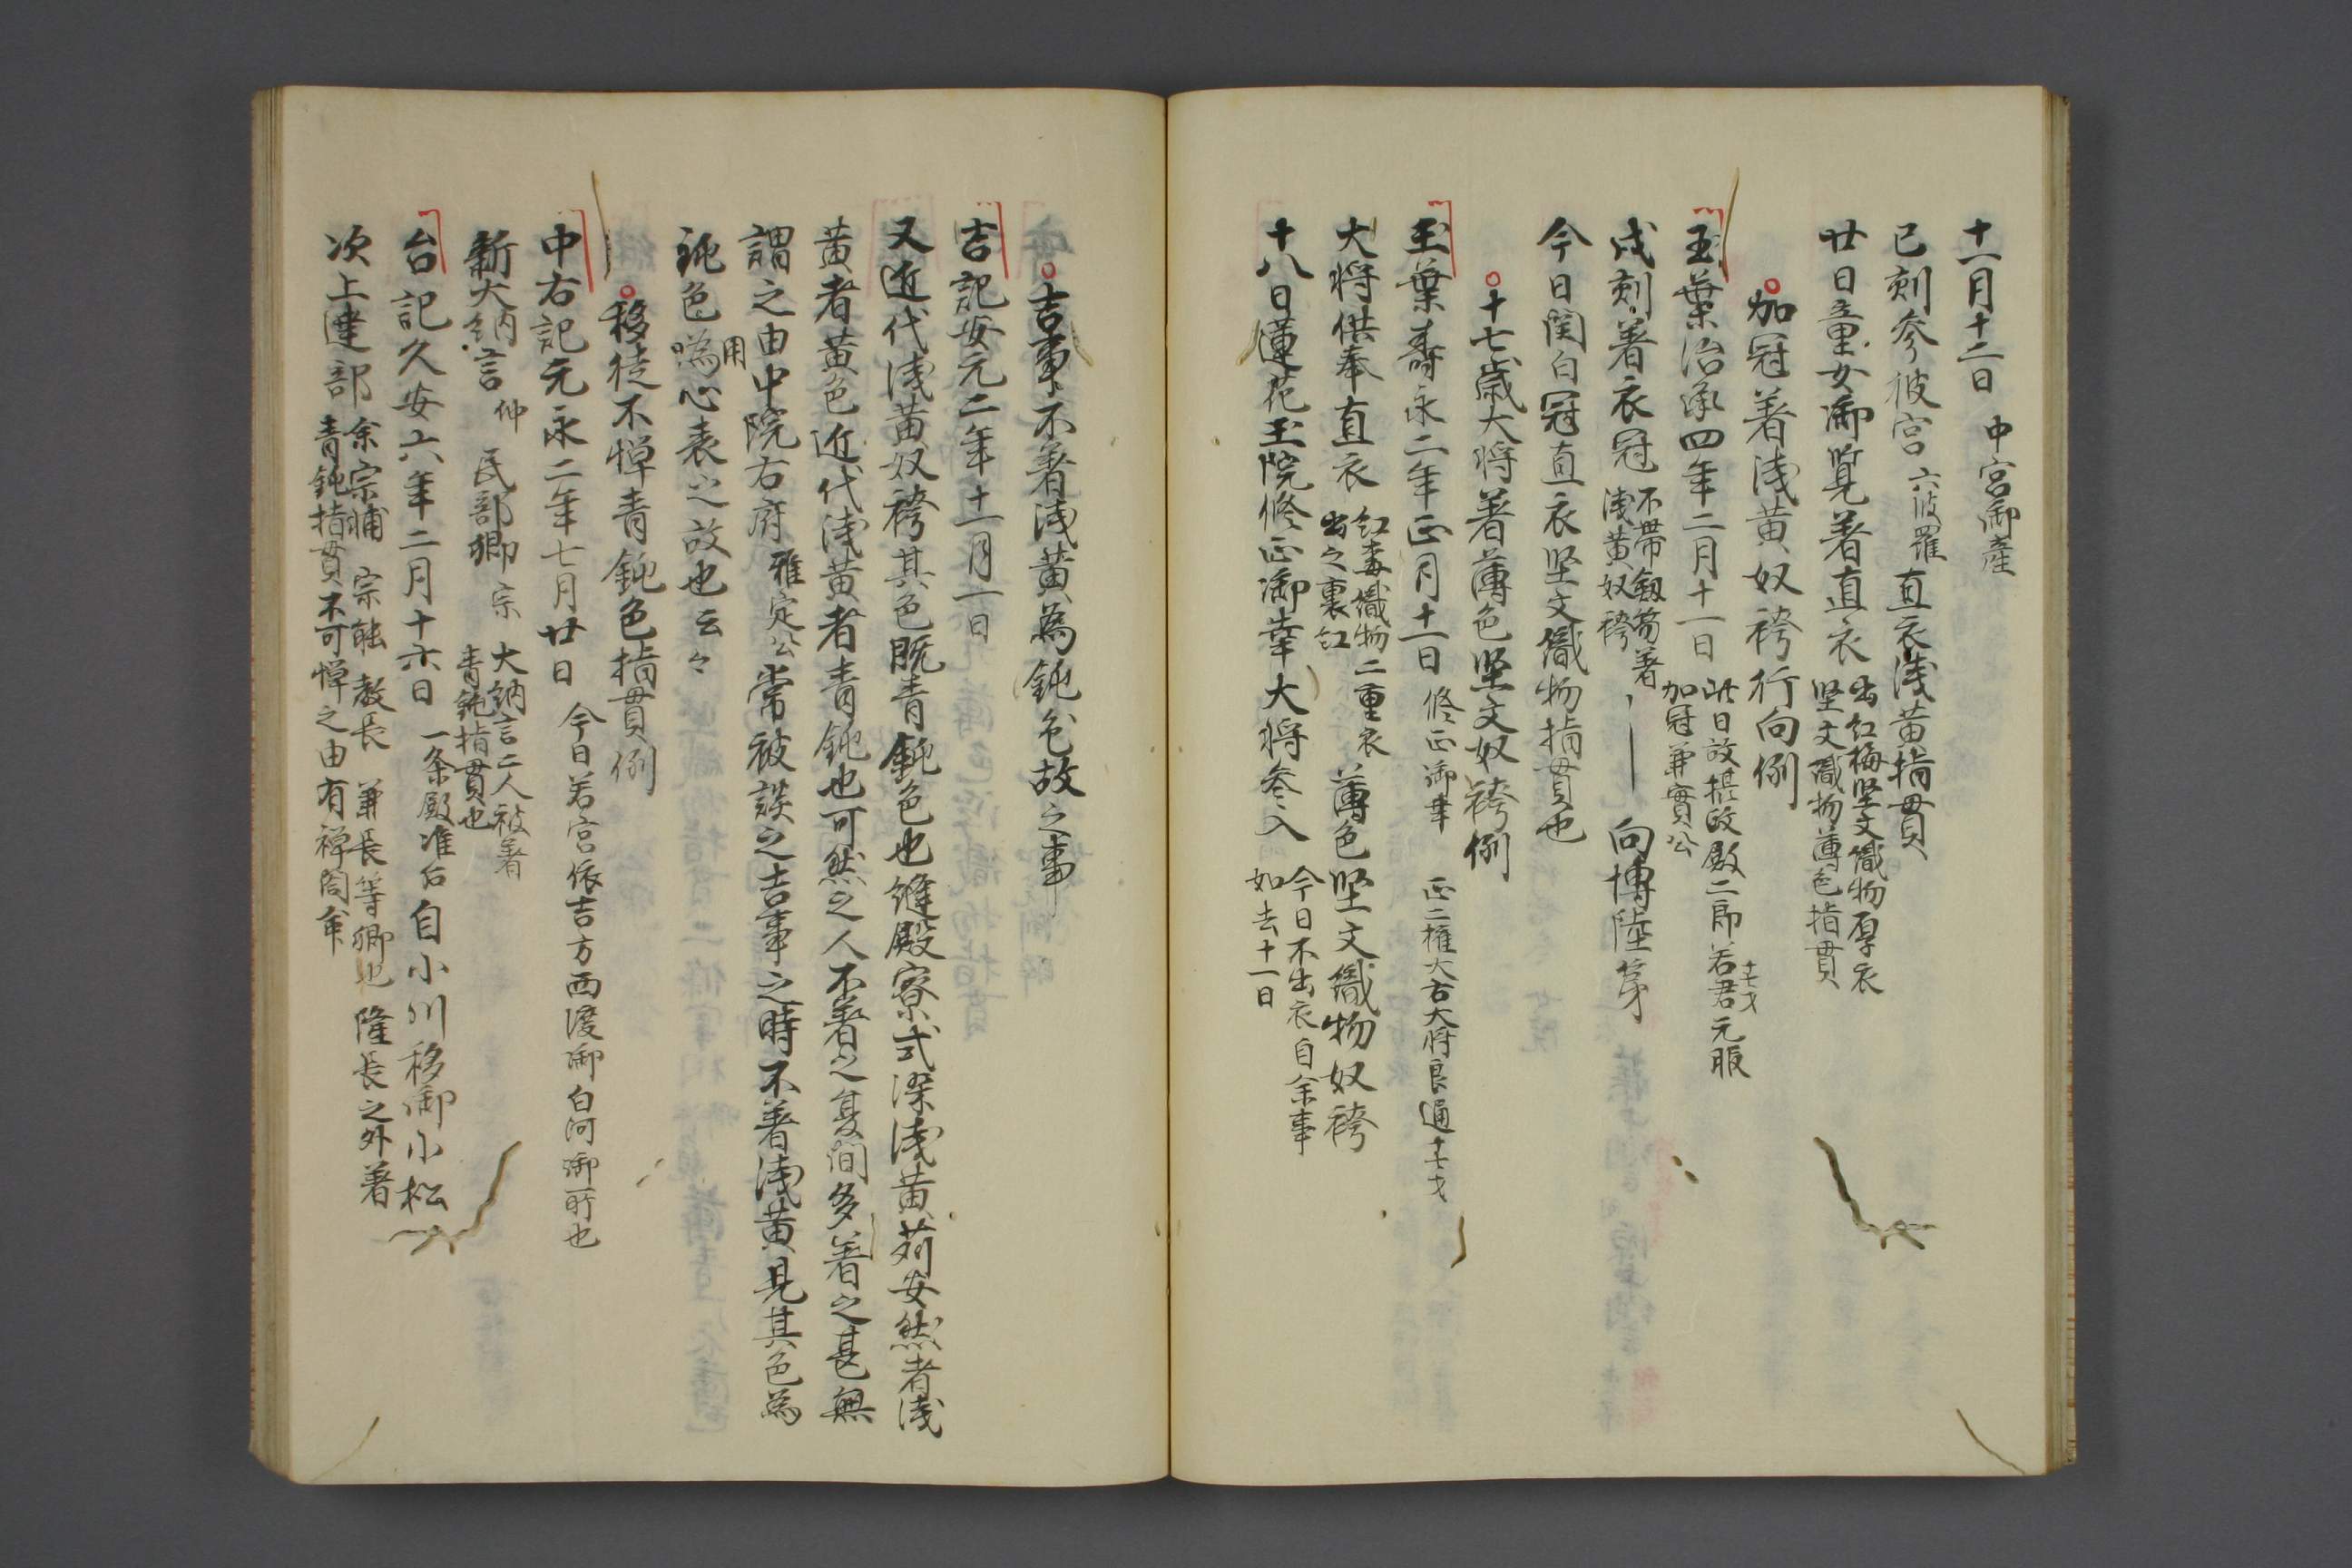 十一月十二日 中宮御産
已刻参彼宮 六波羅 直衣浅黄指貫
廿日童女御覧着直衣 出紅梅堅文織物厚衣
堅文織物薄色指貫
加冠著浅黄奴袴行向例
玉葉治承四年二月十一日 此日故摂政殿二郎若君十七才元服
加冠兼實公
戌刻著衣冠 不帯釼笏著
浅黄奴袴 向博陸第
今日関白冠直衣堅文織物指貫也
十七歳大将著薄色堅文奴袴例
玉葉壽永二年正月十一日 修正御幸 正二権大右大将良通十七才
大将供奉直衣 紅梅織物二重衣
出之裏紅 薄色堅文織物奴袴
十八日蓮花王院修正御幸大将参入 今日不出衣自余事
如去十一日
吉事不著浅黄為鈍色故之事
吉記安元二年十一月一日
又近代浅黄奴袴其色既青鈍色也縫殿寮式深浅黄苅安然者浅
黄者黄色近代浅黄者青鈍也可然之人不著之夏間多著之甚無
謂之由中院右府 雅定公 常被談之吉事之時不著浅黄見其色為
鈍色用喝心表之故也云々
移徒不憚青鈍色指貫例
中右記元永二年七月廿日 今日若宮依吉方西渡御白河御所也
新大納言 仲 民部卿 宗 大納言二人被著
青鈍指貫也
台記久安六年二月十六日 一条殿准后 自小川移御小松
次上達部 余宗輔 宗能 教長 兼長等卿也 隆長之外著
青鈍指貫不可憚之由有禅閤命